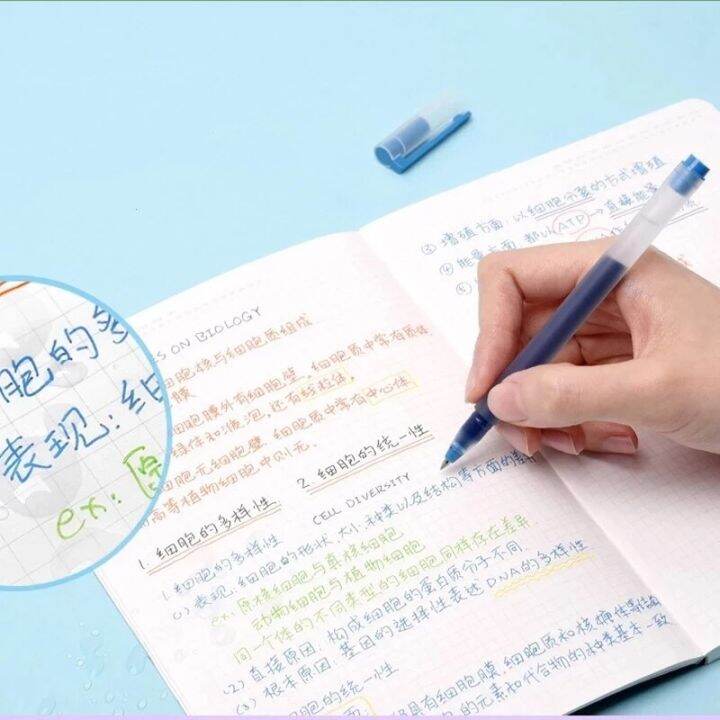 ON BIOLOGY
细胞核与细胞质组成
膜
细胞膜外有细胞壁,细胞质中常有质体
细胞无细胞壁,细胞质中常有中心体
高等植物细胞中则无.
1. 细胞的多样性
2. 细胞的统一性
CELL DIVERSITY
1. 细胞的多样性
(1) 表现:细胞的形状、大小、种类以及结构等方面的差异
ex: 原核细胞与真核细胞
动物细胞与植物细胞
同一个体的不同类型的细胞同样存在差异
(2) 直接原因:构成细胞的蛋白质分子不同.
(3) 根本原因:基因的选择性表达 DNA的多样性
细胞的统一性
具有细胞膜,细胞质和核糖体等结构
的元素和化合物的种类基本一致
③ 增殖方面:以细胞分裂的方式增殖
④ 能量方面 都以ATP→直接能
⑤
胞的多
表现:细
ex: 原